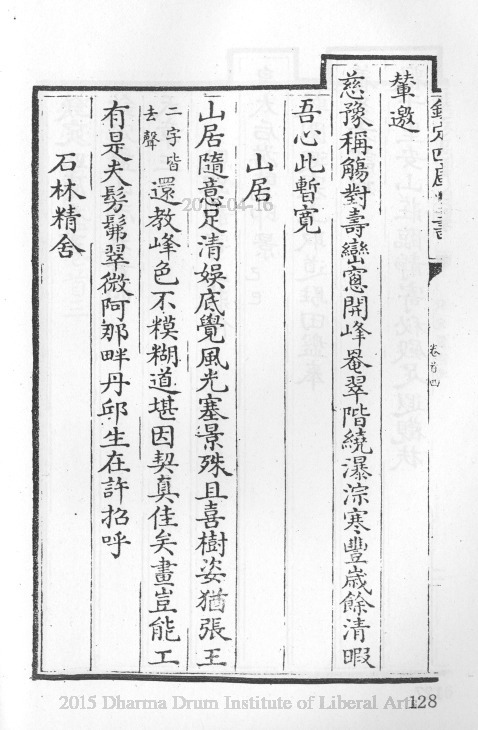 欽定四庫全書
卷首四
輦邀
慈豫稱觴對壽巒窻開峰罨翠階繞瀑淙寒豐歲餘清暇
吾心此暫寬
山居
山居隨意足清娛底覺風光塞景殊且喜樹姿猶張王
二字皆去聲還教峰色不糢糊道堪因契真佳矣畫豈能工
有是夫髣髴翠微阿那畔丹邱生在許招呼
石林精舍
2015-04-16
2015 Dharma Drum Institute of Liberal Arts
128